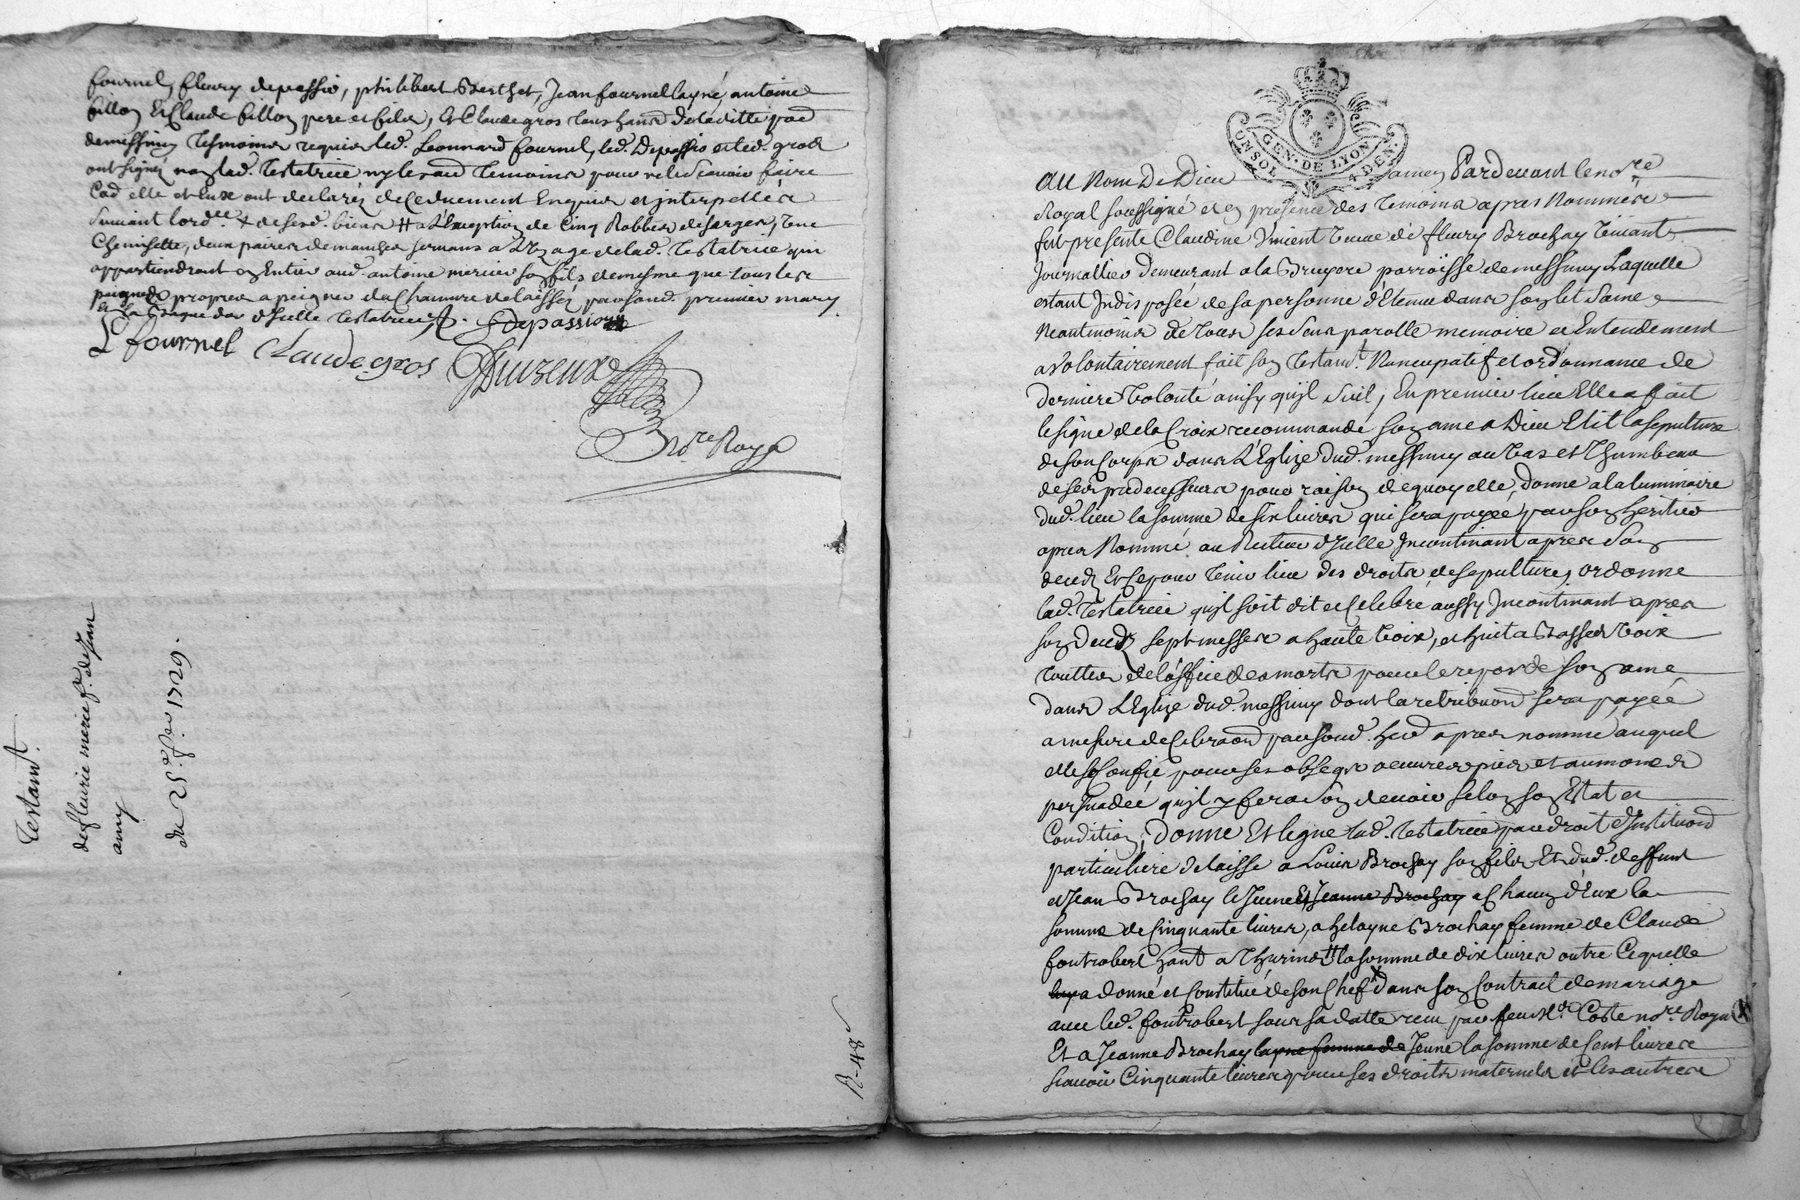 fournel, fleury depassio, philibert Berthet, Jean fournel layné, antoine
fillon Et Claude fillon pere et fils, Et Claude gros tous habd de la ditte parr
de messimy tesmoins requis led. Leonnard fournel, led. Depassio et led. gros
ont signés non lad. Testatrice ny les aud temoins pour ne le Scavoir faire
Lad elle et Eux ont declarés de ce duement Enquis et interpellés
Suivant lord.ce + de sesd. biens # a L'exception de Cinq Robbes de sarges, une
Chemisette, deux paires de manches servans a L'usage de lad. Testatrice qui
appartiendront en Entier aud. antoine mercier son fils de mesme que tous les
peignes propres a peigner du Chanvre delaissés par son d. premier mary
Et la Bague dor d'Icelle testatrice. f depassio
L fournel Claude gros
No.re Royal
Testam.t
de fleurie f. de Jean
amy
du 25.e 1729.
R-48
GEN. DE LYON
au Nom De Dieu amen Pardevant le no.re
Royal soussigné et en presence des temoins apres Nommés
fut presente Claudine Vincent veuve de fleury Brochay vivant
Journallier demeurant a la Bruyere parroisse de messimy Laquelle
estant Indisposée de sa personne détenue dans son lit Saine
Neantmoins de tous ses sens parolle memoire et Entendement
a volontairement fait son testam.t Nuncupatif et ordonnance de
derniere Volonté ainsy qu'il Suit, En premier lieu Elle a fait
le signe de la Croix recommandé son ame a Dieu Elit la sepulture
de son Corps dans L'Eglize dud. messimy au Vas et Thombeau
de ses predecesseurs pour raison de quoy elle, donne a la luminaire
dud. lieu la somme de six livres qui sera payée par son heritier
apres Nommé au Recteur d'Icelle Incontinant apres Son
deceds Et ce pour tenir lieu des droits de sepulture, ordonne
lad. Testatrice qu'il soit dit et Celebré aussy Incontinant apres
son deceds sept messes a haute voix, et huit a Basse Voix
touttes de l'office des morts pour le repos de son ame
dans L'Eglize dud. messimy dont la retribuon sera payée
a mesure de Celebraon par sond. her. apres nommé auquel
elle se Confie pour ses obseqs oeuvres pies et aumones
persuadée qu'il y fera son devoir selon son Estat et
Condition, donne Et legue lad. Testatrice par droit d'Instituon
particuliere delaisse a Louis Brochay son fils Et dud. deffunt
et Jean Brochay le Jeune Et Jeanne Brochay a Chacun d'Eux la
somme de Cinquante livres, a helayne Brochay femme de Claude
fontrobert habt a Thurins # la somme de dix livres outre Ce quelle
luy a donné et Constitué de son Chef dans son Contract de mariage
avec led. fontrobert sous sa datte receu par feu M.e Coste no.re Royal
Et a Jeanne Brochay layne femme de Jeune la somme de Cent livres
scavoir Cinquante livres pour ses droits maternels et les autres